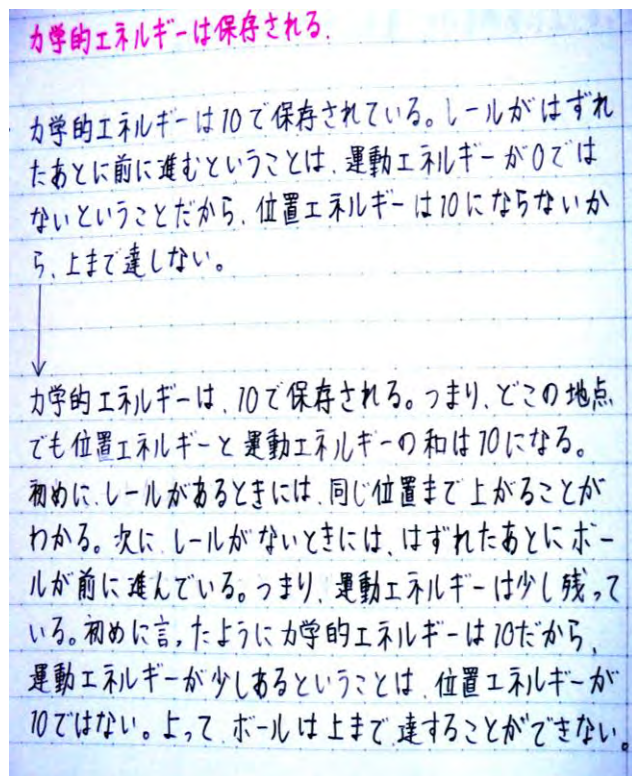 力学的エネルギーは保存される.
力学的エネルギーは10で保存されている。レールがはずれ
たあとに前に進むということは、運動エネルギーが0では
ないということだから、位置エネルギーは10にならないか
ら、上まで達しない。
力学的エネルギーは、10で保存される。つまり、どこの地点
でも位置エネルギーと運動エネルギーの和は10になる。
初めに、レールがあるときには、同じ位置まで上がることが
わかる。次に、レールがないときには、はずれたあとにボー
ルが前に進んでいる。つまり、運動エネルギーは少し残って
いる。初めに言ったように力学的エネルギーは10だから、
運動エネルギーが少しあるということは、位置エネルギーが
10ではない。よって、ボールは上まで達することができない。